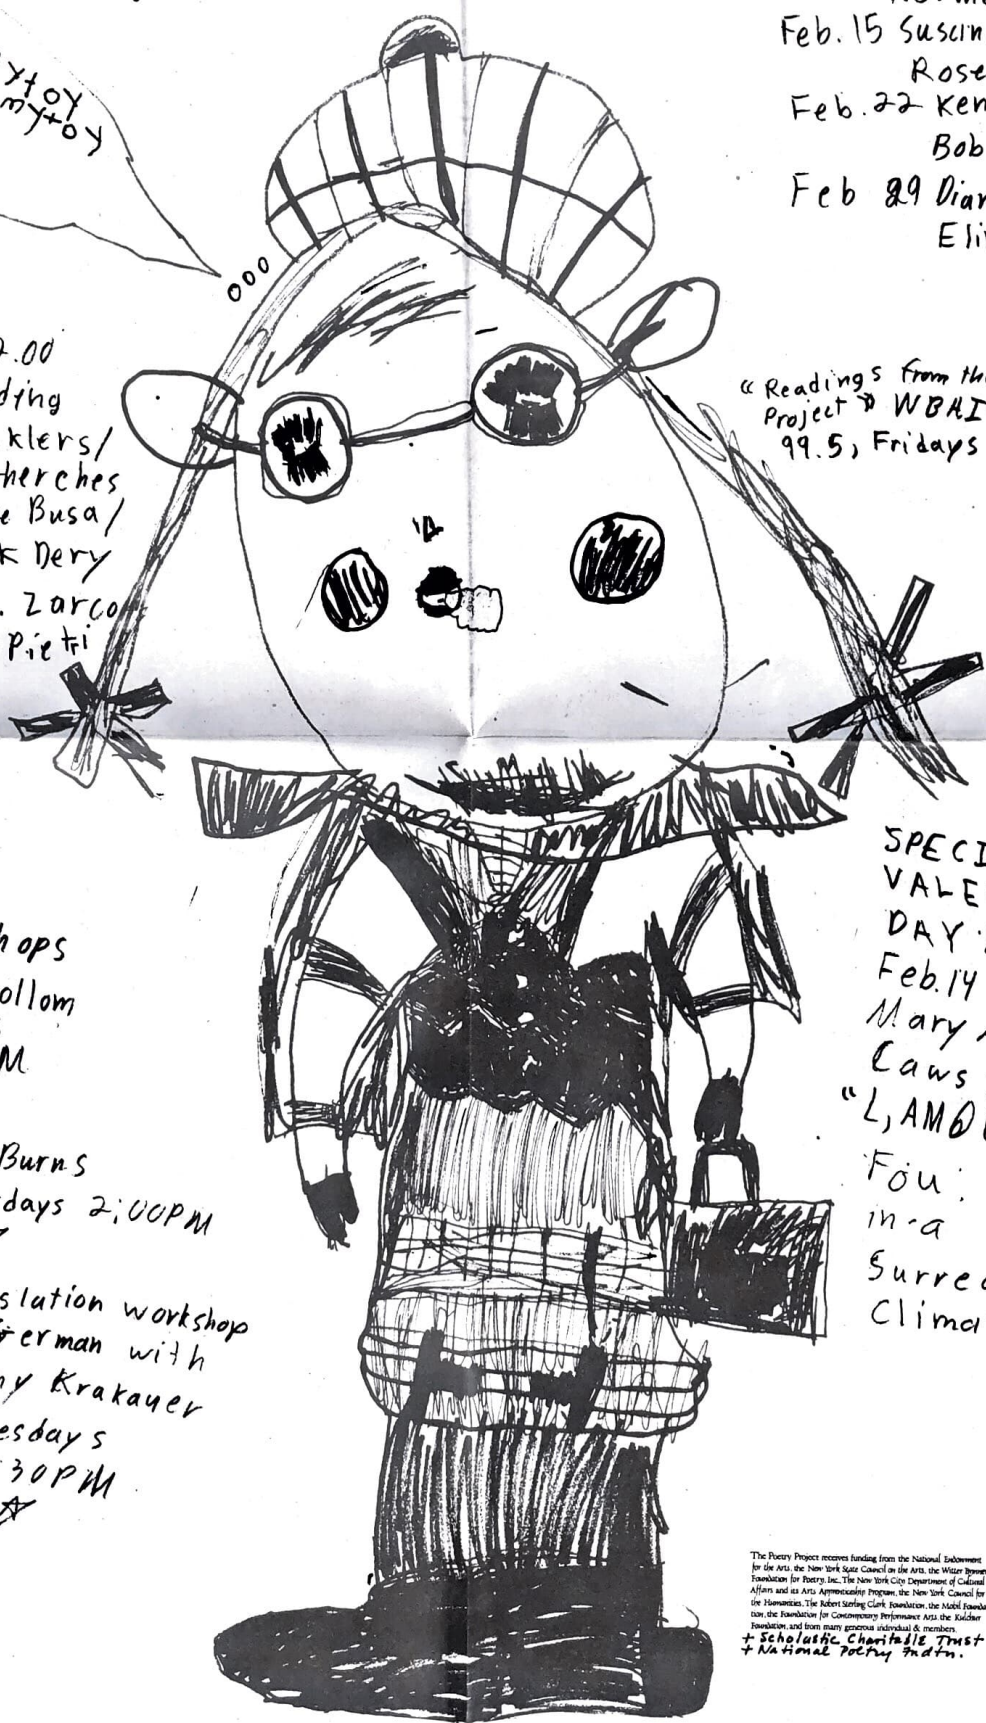 Feb. 15 Susan
Rose
Feb. 22 Ken
Bob
Feb 29 Dian
Eli
2.00
ding
klers/
herches
e Busa/
k Dery
. Zarco
Pietri
"Readings from the
Project" WBAI
99.5, Fridays
hops
ollom
M
Burns
days 2:00PM
slation workshop
German with
ny Krakauer
esdays
30PM
SPECI
VALE
DAY
Feb. 14
Mary
Caws
"L,AMO
Fou:
in a
Surre
Clima
The Poetry Project receives funding from the National Endowment
for the Arts, the New York State Council on the Arts, the Witter Bynner
Foundation for Poetry, Inc., The New York City Department of Cultural
Affairs and its Arts Apprenticeship Program, the New York Council for
the Humanities, The Robert Sterling Clark Foundation, the Mobil Founda-
tion, the Foundation for Contemporary Performance Arts, the Kulchur
Foundation, and from many generous individual & members.
+ Scholastic Charitable Trust
+ National Poetry Fndtn.